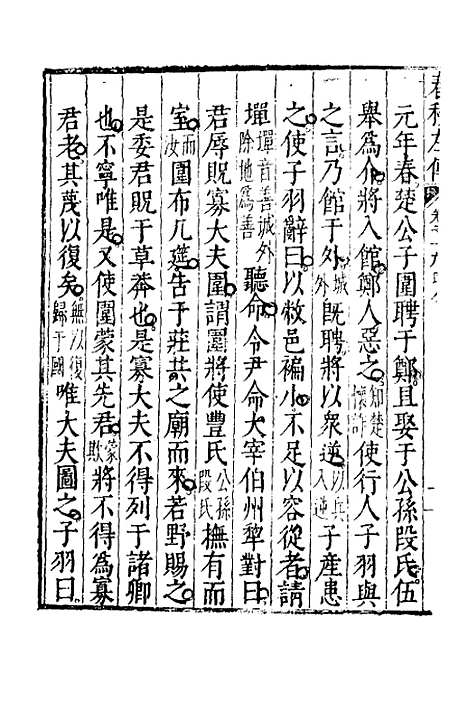 元年春楚公子圍聘于鄭且娶于公孫段氏伍
舉爲介將入館鄭人惡之知楚懷詐使行人子羽與
之言乃館于外城外既聘將以衆逆以兵入逆子產患
之使子羽辭曰以敝邑褊小不足以容從者請
墠墠音善城外除地爲善聽命令尹命大宰伯州犂對曰
君辱貺寡大夫圍謂圍將使豐氏公孫段氏撫有而
室而汝圍布几筵告于莊共之廟而來若野賜之
是委君貺于草莽也是寡大夫不得列于諸卿
也不寧唯是又使圍蒙其先君蒙欺將不得爲寡
君老其蔑以復矣無以復歸于國唯大夫圖之子羽曰